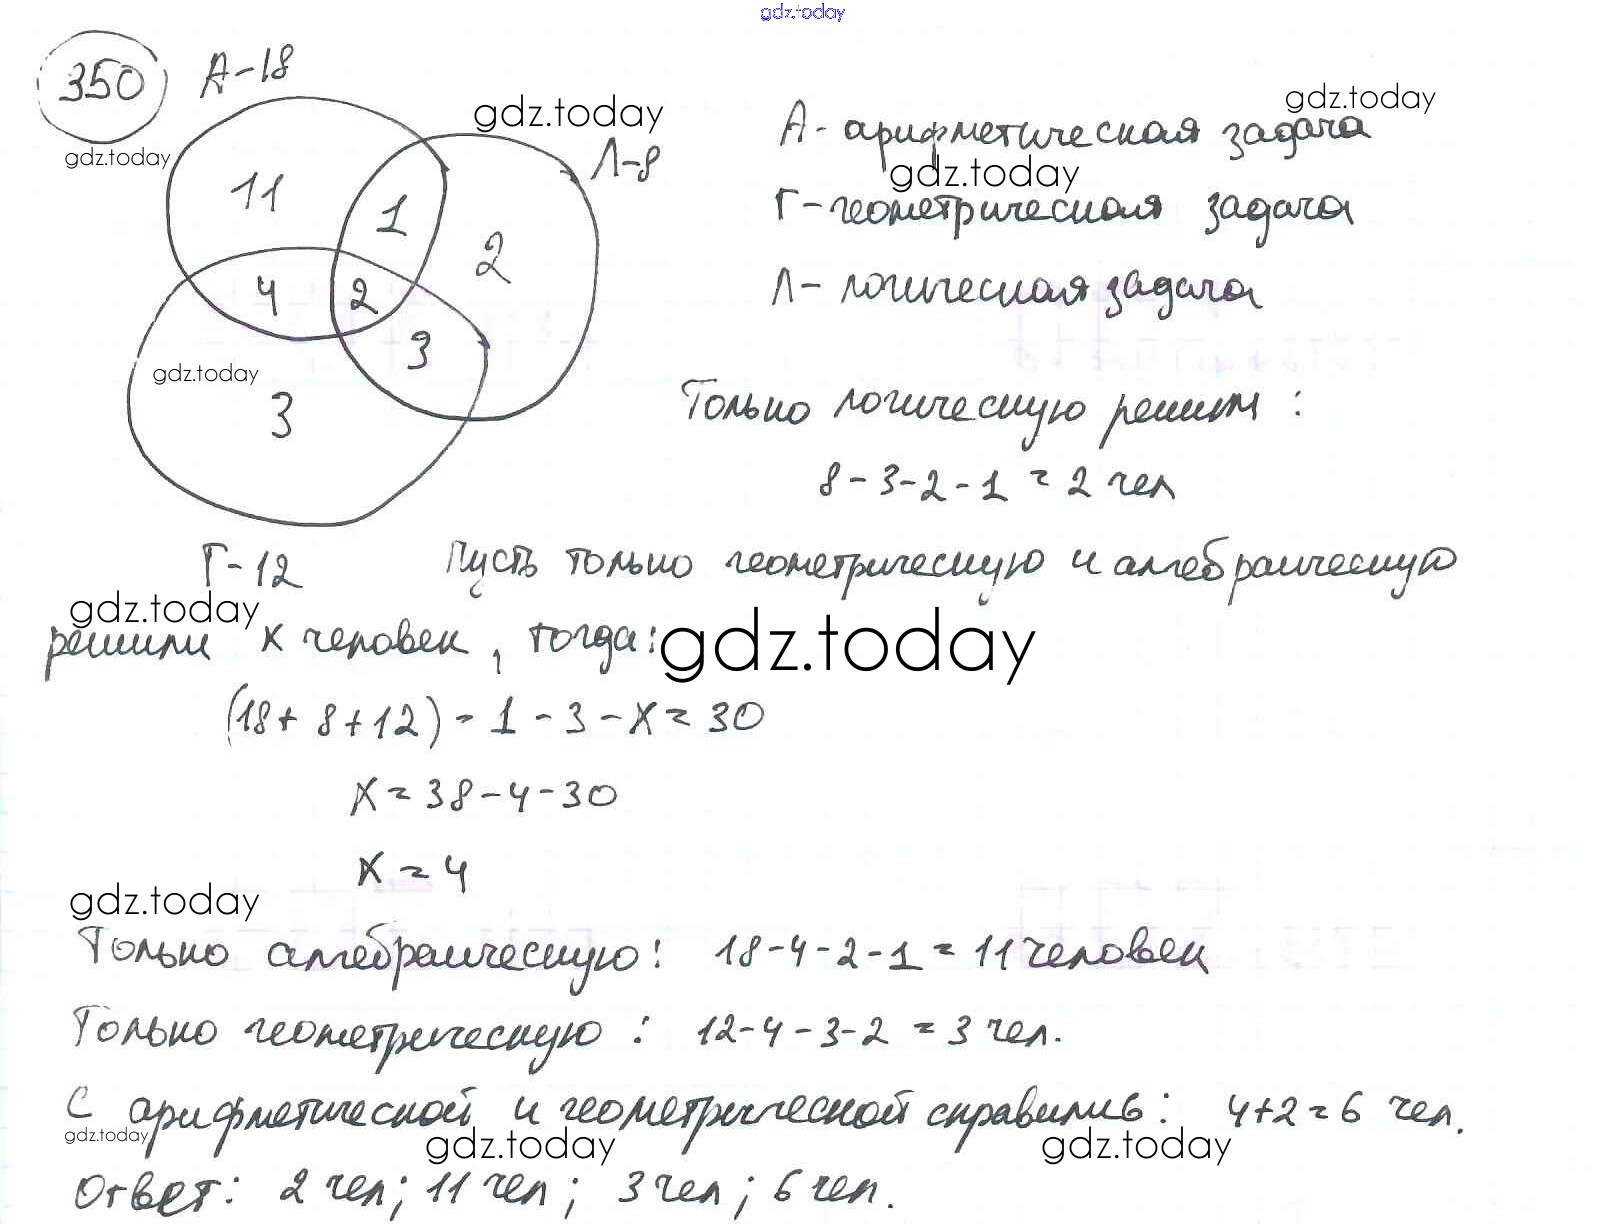 gdz.today
350 А-18
gdz.today
gdz.today
gdz.today
Л-8
А- арифметическая задача
gdz.today
Г-геометрическая задача
Л- логическая задача
11 1 2
4 2 3
gdz.today
3
Только логическую решили :
8-3-2-1 = 2 чел
Г-12
Пусть только геометрическую и алгебраическую
gdz.today
решили х человек, тогда:
gdz.today
(18+ 8+12) - 1 - 3 - х = 30
х = 38-4-30
х = 4
gdz.today
Только алгебраическую: 18-4-2-1 = 11 человек
Только геометрическую : 12-4-3-2 = 3 чел.
С арифметической и геометрической справились: 4+2=6 чел.
gdz.today
gdz.today
gdz.today
Ответ: 2 чел; 11 чел; 3 чел; 6 чел.